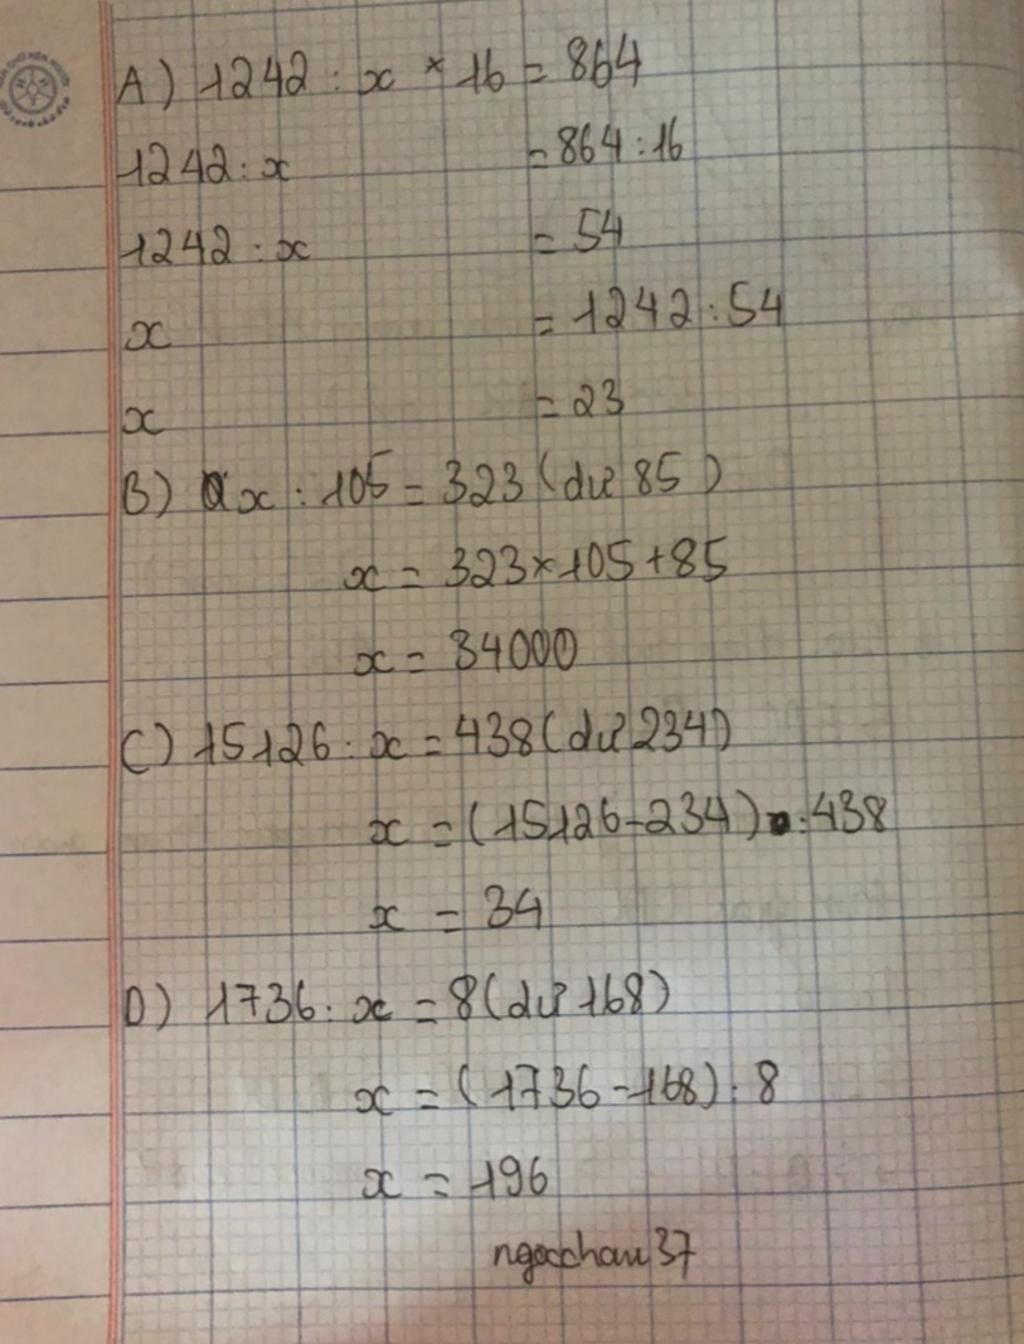 A) 1242 : x × 16 = 864
1242 : x = 864 : 16
1242 : x = 54
x = 1242 : 54
x = 23
B) x : 105 = 323 (dư 85)
x = 323 × 105 + 85
x = 34000
C) 15126 : x = 438 (dư 234)
x = (15126 - 234) : 438
x = 34
D) 1736 : x = 8 (dư 168)
x = (1736 - 168) : 8
x = 196
ngocchau37